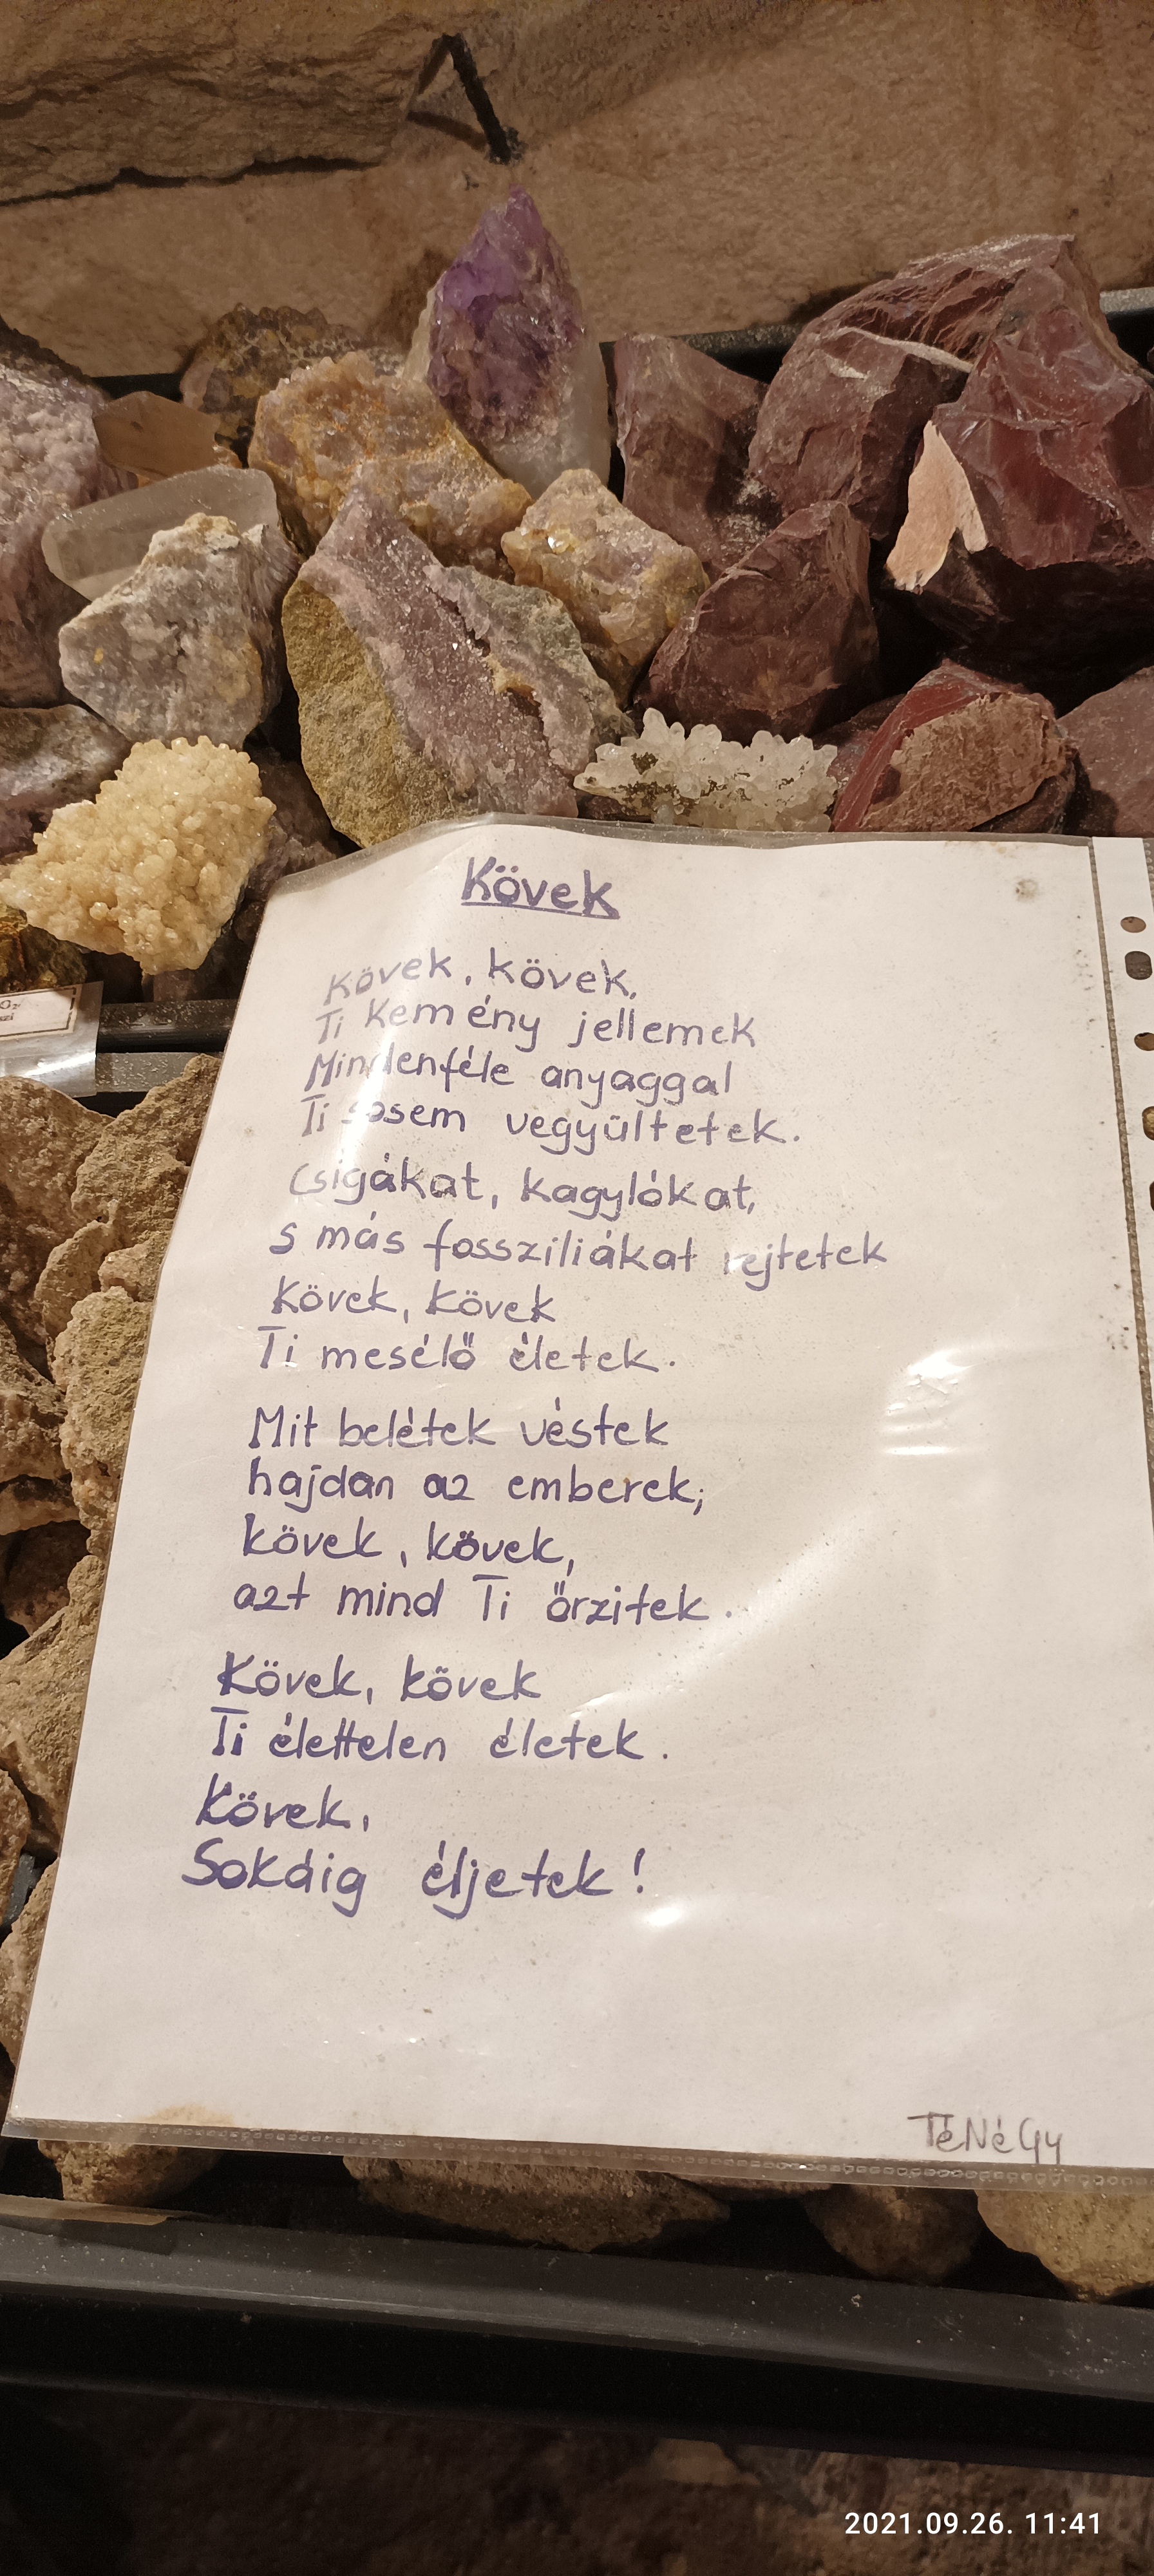 Kövek
Kövek, kövek,
Ti Kemény jellemek
Mindenféle anyaggal
Ti sosem vegyültetek.
Csigákat, kagylókat,
s más fossziliákat rejtetek
Kövek, kövek
Ti mesélő életek.
Mit belétek véstek
hajdan az emberek;
kövek, kövek,
azt mind Ti őrzitek.
Kövek, kövek
Ti élettelen életek.
Kövek,
Sokáig éljetek!
TéNéGy
2021.09.26. 11:41